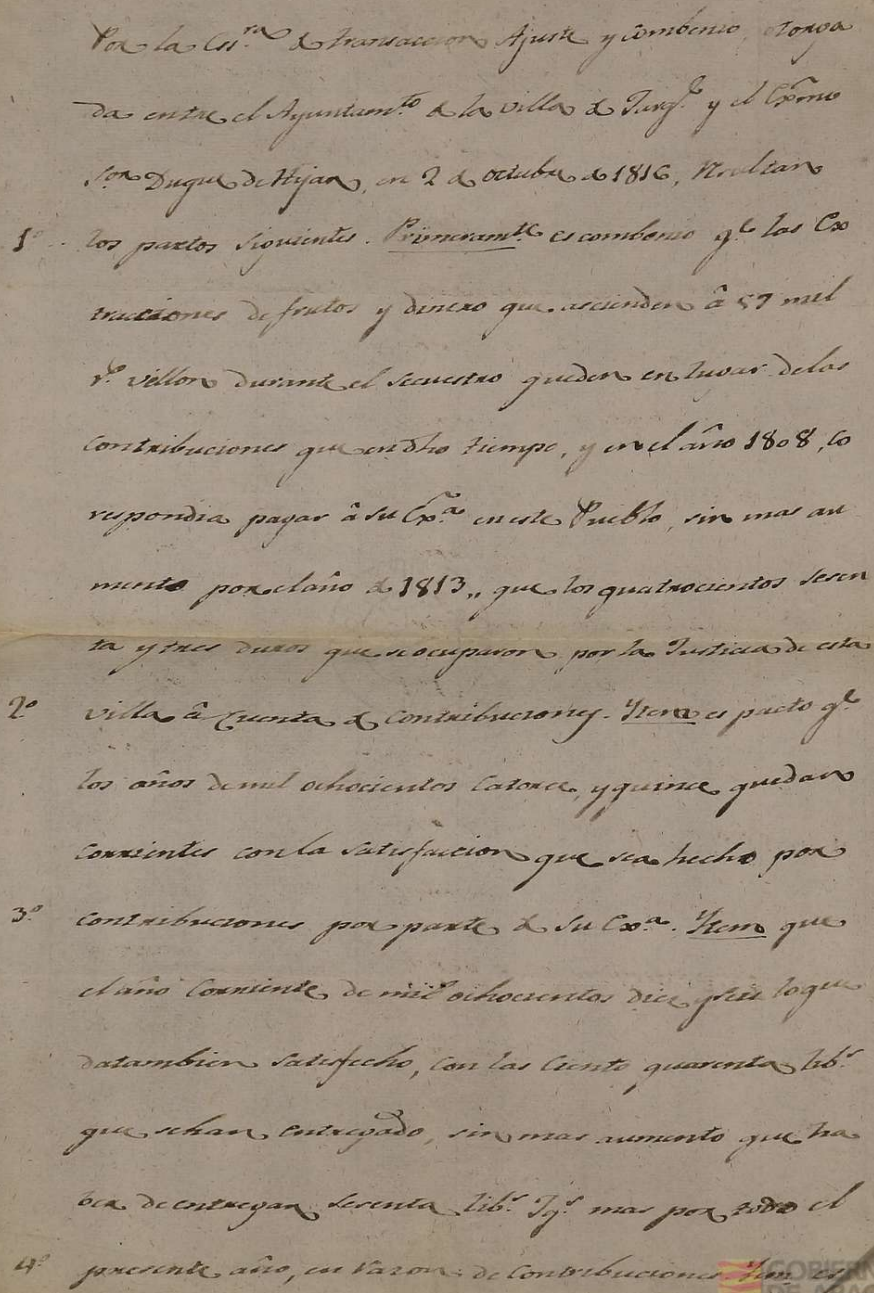 Por la Essra. de transaccion Ajuste y combenio, otorga
da entre el Ayuntamto. de la villa de y el Exmo
Sor. Duque de Hijar, en 2 de octubre de 1816, Resultan
1º los pactos siguientes. Primeramte. es combenio qe. las Ex
tracciones de frutos y dinero que ascienden â 57 mil
rs. vellon durante el secuestro queden en lugar de las
contribuciones que en dho tiempo, y en el año 1808, co
respondia pagar â su Exa. en este Pueblo, sin mas au
mento por el año de 1813,, que los quatrocientos sesen
ta y tres duros que se ocuparon por la Justicia de esta
2º villa â cuenta de contribuciones. Item es pacto qe.
los años de mil ochocientos catorce, y quince quedan
corrientes con la satisfaccion que sea hecho por
3º contribuciones por parte de su Exa. Item que
el año corriente de mil ochocientos diez y seis lo que
da tambien satisfecho, con las ciento quarenta libs.
que sehan entregado, sin mas aumento que ha
ber de entregar sesenta libs. Jqs. mas por todo el
4º presente año, en razon de contribuciones Item es
GOBIERN
DE ARAG